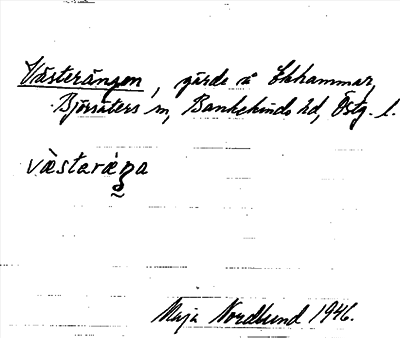 Västerängen, gärde å Ekhammar,
Bjärsäters sn, Bankekinds hd, Östg. l.
västaräŋa
Maja Nordlund 1946.